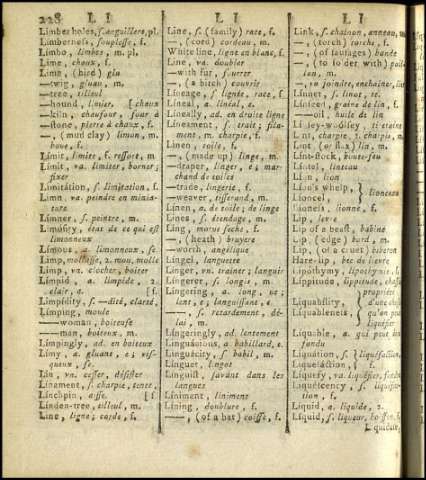 228 L I L I L I
Limber holes, s. anguillers, pl.
Limberness, souplesse, f.
Limbo, limbes, m. pl.
Lime, chaux, f.
Lime, (bird) glu
—twig, gluau, m.
—tree, tilleul
—hound, limier, [chaux
—kiln, chaufour, four à
—stone, pierre à chaux, f.
—, (mud clay) limon, m.
boue, f.
Limit, limite, f. ressort, m.
Limit, va. limiter, borner;
fixer
Limitation, s. limitation, f.
Limn, va. peindre en minia-
ture
Limner, s. peintre, m.
Limosity, état de ce qui est
limonneux
Limous, a. limonneux, se
Limp, mollasse, 2. mou, molle
Limp, va. clocher, boiter
Limpid, a. limpide, 2.
clair, a. [f.
Limpidity, s. —dité, clarté,
Limping, moule
——woman, boiteuse
——man, boiteux, m.
Limpingly, ad. en boiteux
Limy, a. gluant, e; vis-
queux, se
Lin, vn. cesser, désister
Linament, s. charpie, tente,
Linchpin, aisse. [f
Linden-tree, tilleul, m.
Line, ligne; corde, f.
Line, s. (family) race, f.
—, (cord) cordeau, m.
White line, ligne en blanc, f.
Line, va. doubler
—with fur, fourrer
—, (a bitch) couvrir
Lineage, s. lignée, race, f.
Lineal, a. linéal, e.
Lineally, ad. en droite ligne
Lineament, s. trait; fila-
ment, charpie, f.
Linen, toile, f.
—, (made up) linge, m.
—draper, linger, e; mar-
chand de toiles
—trade, lingerie, f.
—weaver, tisserand, m.
Linen, a. de toile; de linge
Lines, s. étendage, m.
Ling, morue seche, f.
—, (heath) bruyere
—worth, angélique
Lingel, languette
Linger, vn. traîner; languir
Lingerer, s. longis, m.
Lingering, a. long, ue;
lent, e; languissant, e
——, s. retardement, dé-
lai, m.
Lingeringly, ad. lentement
Linguacious, a. babillard, e.
Linguacity, s. babil, m.
Linguet, lingot
Linguist, savant dans les
langues
Liniment, liniment
Lining, doublure, f.
——, (of a hat) coiffe, f.
Link, s. chaînon, anneau, m.
—, (torch) torche, f.
—, (of sausages) bande
—, (to solder with) pail-
lon, m.
Linnet, s. linot, te.
Linseed, graine de lin, f.
——oil, huile de lin
Lint, (or flax) lin, m.
Lint-stock, boute-feu
Lintel, linteau
Lion, lion
Lion's whelp, } lionceau
Lioncel, }
Lioness, lionne, f.
Lip, levre
Lip of a beast, babine
Lip, (edge) bord, m.
Lip, (of a cruet) biberon
Hare-lip, bec de lievre
Lipothymy, lipothymie, f.
Lippitude, lippitude, chassie
Liquability, } propriété
Liquableness } d'une chose
qu'on peut
liquéfier
Liquable, a. qui peut être
fondu
Liquation, s. } liquéfaction,
Liquefaction, } f.
Liquefy, va. liquéfier, fondre
Liquescency, s. liquéfac-
tion, f.
Liquid, a. liquide, 2.
Liquid, s. liqueur, boisson, f.
Liquidate,